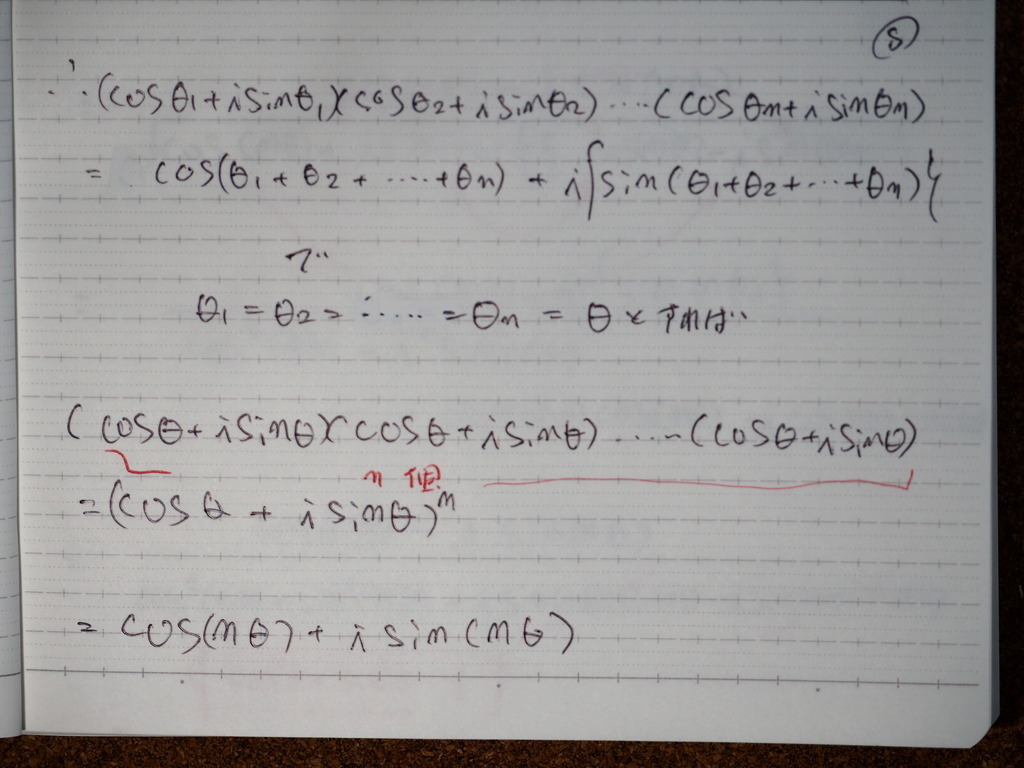 ⑤
∴ (cosθ1+isinθ1)(cosθ2+isinθ2)‥‥(cosθn+isinθn)
= cos(θ1+θ2+‥‥+θn) + i{sin(θ1+θ2+‥‥+θn)}
で
θ1=θ2=‥‥‥=θn=θ とすれば
(cosθ+isinθ)(cosθ+isinθ)‥‥(cosθ+isinθ)
n個
=(cosθ + isinθ)^n
= cos(nθ)+ i sin(nθ)